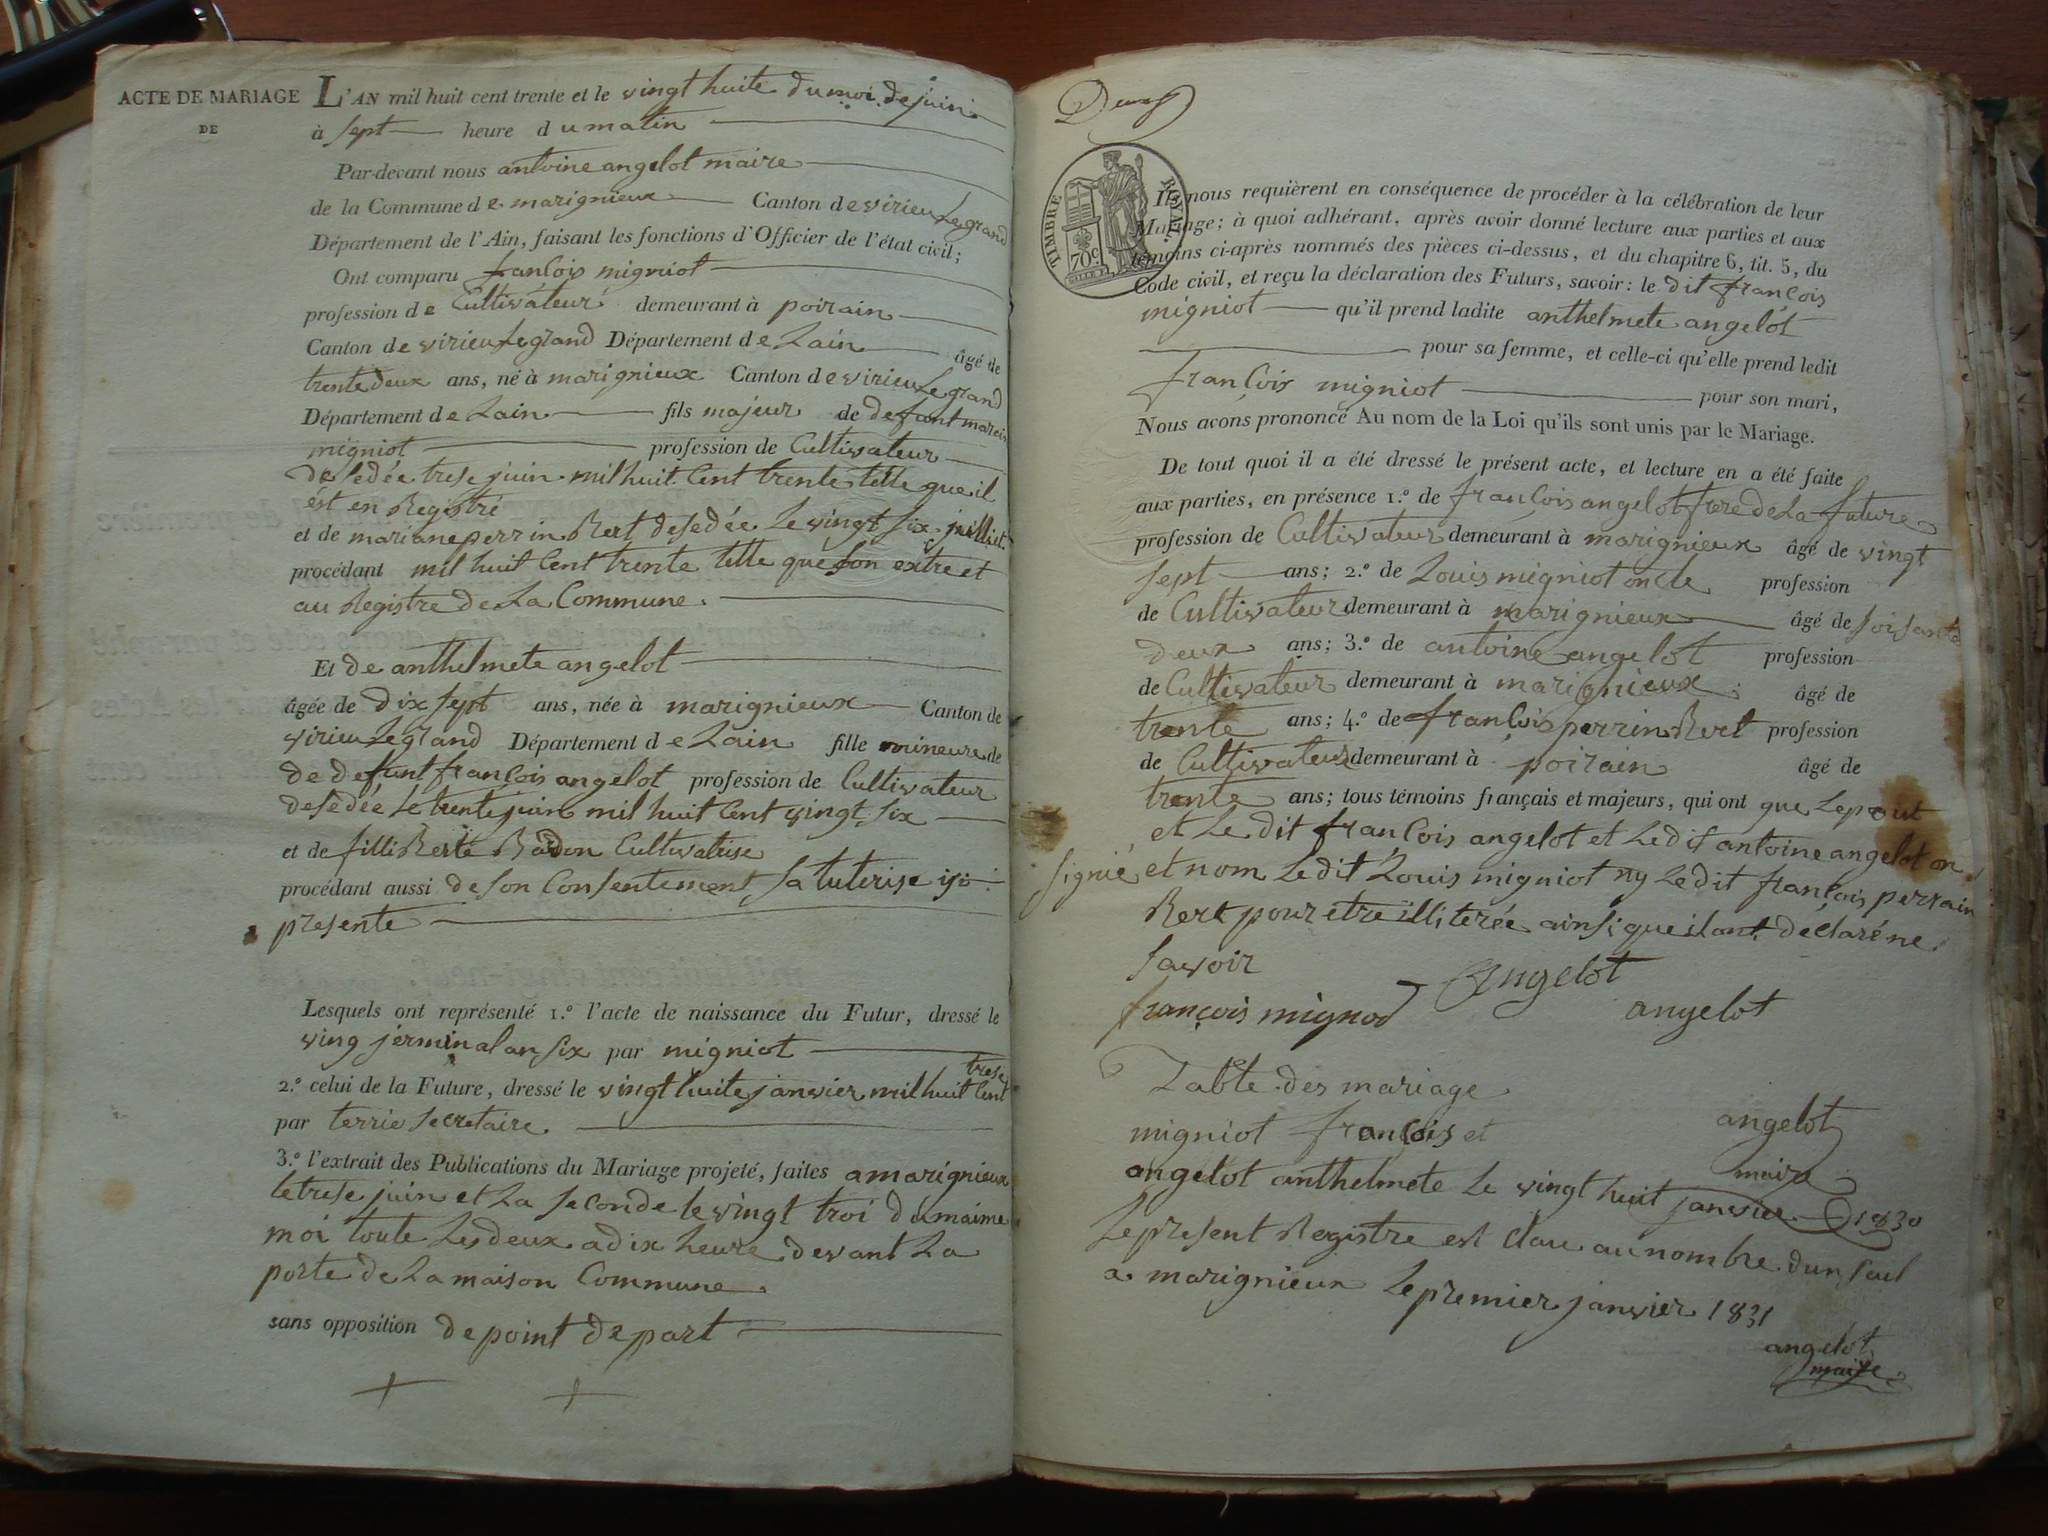 ACTE DE MARIAGE
DE
L'AN mil huit cent trente et le vingt huite du moi de juin
à sept heure du matin
Par-devant nous antoine angelot maire
de la Commune de marignieux Canton de virieu Le grand
Département de l'Ain, faisant les fonctions d'Officier de l'état civil;
Ont comparu françois migniot
profession de Cultivateur demeurant à poirain
Canton de virieu Le grand Département de Lain âgé de
trente deux ans, né à marignieux Canton de virieu Le grand
Département de Lain fils majeur de defunt
migniot profession de Cultivateur
desedée trese juin mil huit Cent trente telle que il
ést en Registré
et de mariane perrin Bert desedée Le vingt six juilliet
procédant mil huit Cent trente telle que son extre et
au Registre de La Commune.
Et de anthelmete angelot
âgée de dix sept ans, née à marignieux Canton de
virieu Le grand Département de Lain fille mineure de
de defunt françois angelot profession de Cultivateur
desedée Le trente juin mil huit Cent vingt six
et de filliberte Badon Cultivateise
procédant aussi de son Consentement sa tuterise isi
presente
Lesquels ont représenté 1.º l'acte de naissance du Futur, dressé le
ving jerminal an six par migniot
trese
2.º celui de la Future, dressé le vingt huite janvier mil huit Cent
par terrie secretaire
3.º l'extrait des Publications du Mariage projeté, faites a marignieux
le trese juin et La seconde le vingt troi du maime
moi toute Les deux a dix heure devant La
porte de La maison Commune.
sans opposition de point de part
Deux
TIMBRE ROYAL.
70 c.
Ils nous requièrent en conséquence de procéder à la célébration de leur
Mariage; à quoi adhérant, après avoir donné lecture aux parties et aux
témoins ci-après nommés des pièces ci-dessus, et du chapitre 6, tit. 5, du
Code civil, et reçu la déclaration des Futurs, savoir: le dit françois
migniot qu'il prend ladite anthelmete angelot
pour sa femme, et celle-ci qu'elle prend ledit
françois migniot pour son mari,
Nous avons prononcé Au nom de la Loi qu'ils sont unis par le Mariage.
De tout quoi il a été dressé le présent acte, et lecture en a été faite
aux parties, en présence 1.º de françois angelot frere de La future
profession de Cultivateur demeurant à marignieux âgé de vingt
sept ans; 2.º de Louis migniot oncle profession
de Cultivateur demeurant à marignieux âgé de soisante
deux ans; 3.º de antoine angelot profession
de Cultivateur demeurant à marignieux âgé de
trente ans; 4.º de françois perrin Bert profession
de Cultivateur demeurant à poirain âgé de
trente ans; tous témoins français et majeurs, qui ont que Lepout
et Le dit françois angelot et Le dit antoine angelot on
signié et nom Le dit Louis migniot ny Le dit françois perrain
Bert pour etre illiterée ainsi que il ont déclaré ne
savoir
françois mignod Angelot
angelot
Table des mariage
migniot françois et angelot
maire
angelot anthelmete Le vingt huit janvier 1830
Le present Registre est clau au nombre dun seul
a marignieux Le premier janvier 1831
angelot
maire